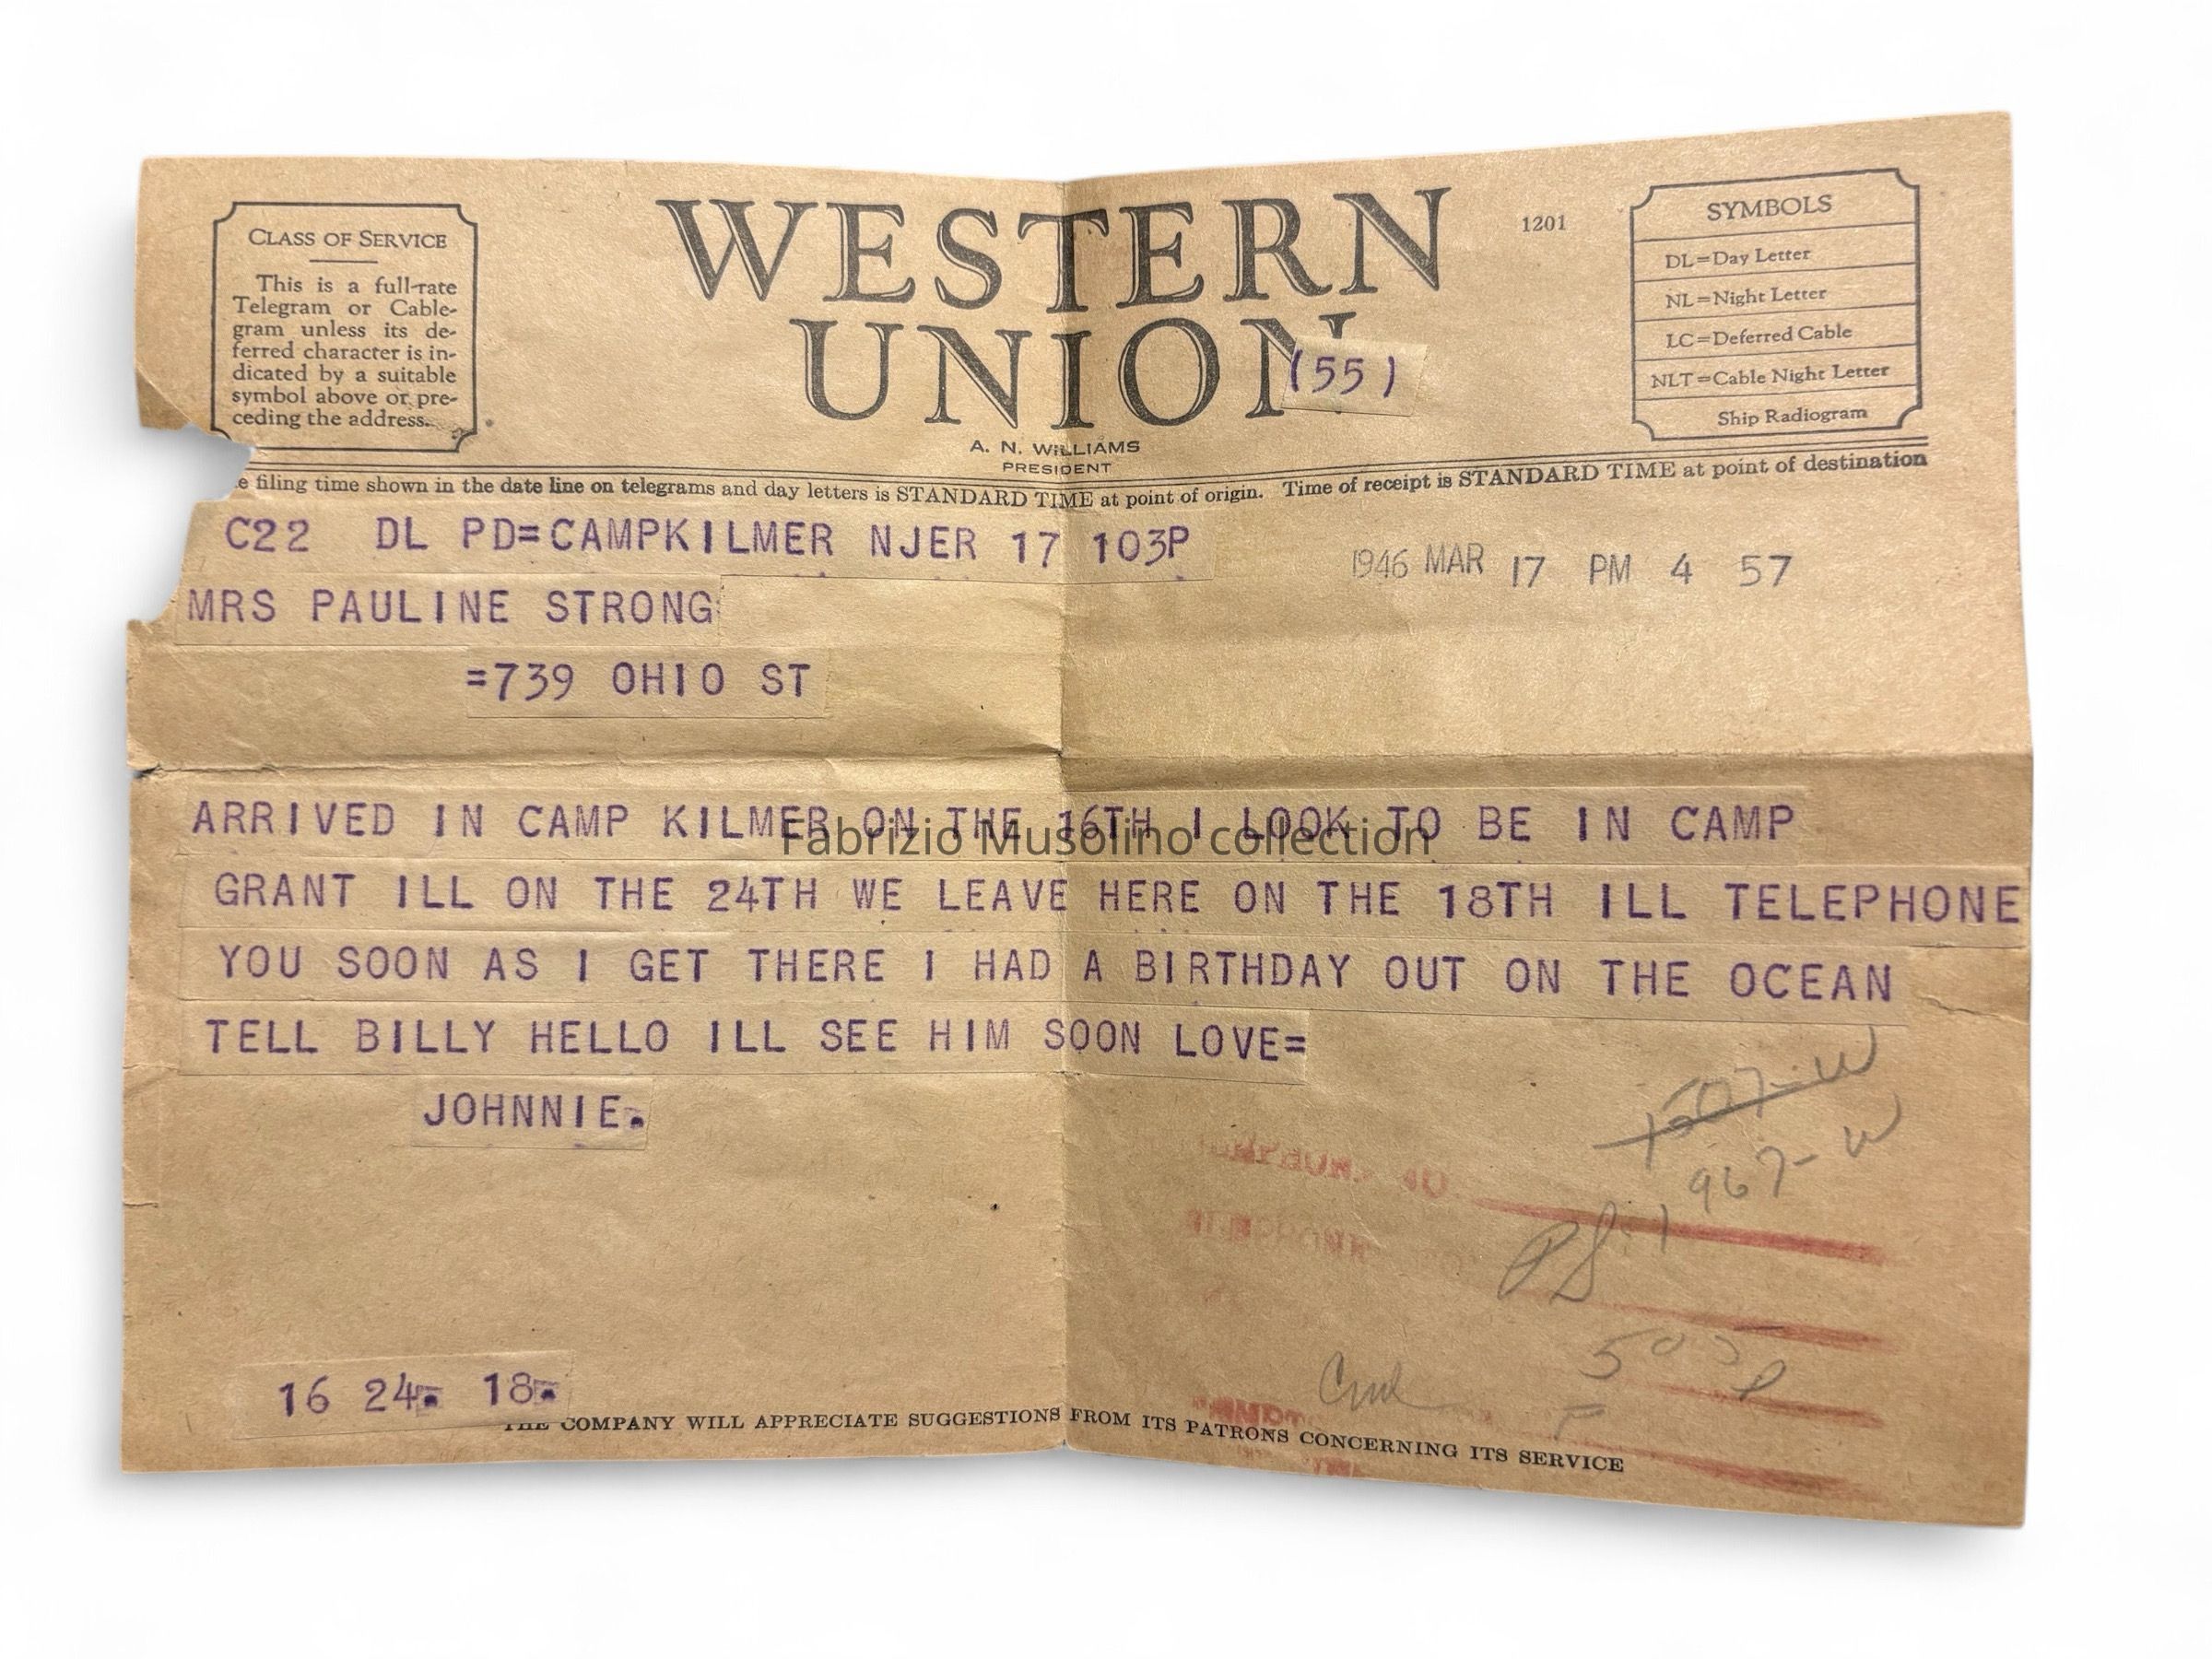 CLASS OF SERVICE
This is a full-rate
Telegram or Cable-
gram unless its de-
ferred character is in-
dicated by a suitable
symbol above or pre-
ceding the address.
WESTERN
UNION
(55)
A. N. WILLIAMS
PRESIDENT
1201
SYMBOLS
DL=Day Letter
NL=Night Letter
LC=Deferred Cable
NLT=Cable Night Letter
Ship Radiogram
filing time shown in the date line on telegrams and day letters is STANDARD TIME at point of origin. Time of receipt is STANDARD TIME at point of destination
C22 DL PD=CAMPKILMER NJER 17 103P
1946 MAR 17 PM 4 57
MRS PAULINE STRONG
=739 OHIO ST
ARRIVED IN CAMP KILMER ON THE 16TH I LOOK TO BE IN CAMP
Fabrizio Musolino collection
GRANT ILL ON THE 24TH WE LEAVE HERE ON THE 18TH ILL TELEPHONE
YOU SOON AS I GET THERE I HAD A BIRTHDAY OUT ON THE OCEAN
TELL BILLY HELLO ILL SEE HIM SOON LOVE=
JOHNNIE.
1507-W
967-W
16 24. 18.
THE COMPANY WILL APPRECIATE SUGGESTIONS FROM ITS PATRONS CONCERNING ITS SERVICE